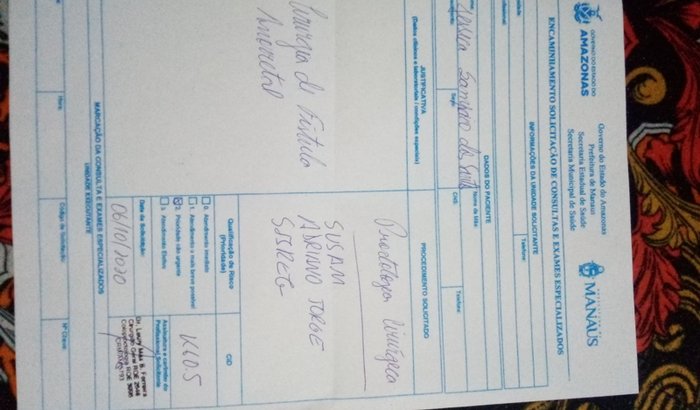 GOVERNO DO ESTADO DO
AMAZONAS
Governo do Estado do Amazonas
Prefeitura de Manaus
Secretaria Estadual de Saúde
Secretaria Municipal de Saúde
PREFEITURA DE
MANAUS
ENCAMINHAMENTO SOLICITAÇÃO DE CONSULTAS E EXAMES ESPECIALIZADOS
INFORMAÇÕES DA UNIDADE SOLICITANTE
Telefone:
DADOS DO PACIENTE
Nome da Mãe:
Jessica Sampaio dos Santos
Sexo:
End.:
Telefone:
JUSTIFICATIVA
(Dados clínicos e laboratoriais / condições especiais)
PROCEDIMENTO SOLICITADO
Cirurgia de Fístula
Anorretal
Proctologia Cirúrgica
SUSAM
ADRIANO JORGE
SISREG
Qualificação de Risco
(Prioridade)
0. Atendimento imediato
1. Atendimento o mais breve possível
2. Prioridade não urgente
3. Atendimento Eletivo
CID
K605
Data da Solicitação:
06/10/2020
Assinatura e carimbo do
Profissional Solicitante
Ferreira
Cirurgião Geral RQE
MARCAÇÃO DA CONSULTA E EXAMES ESPECIALIZADOS
UNIDADE EXECUTANTE
Hora:
Código da Solicitação:
Nº Chave: